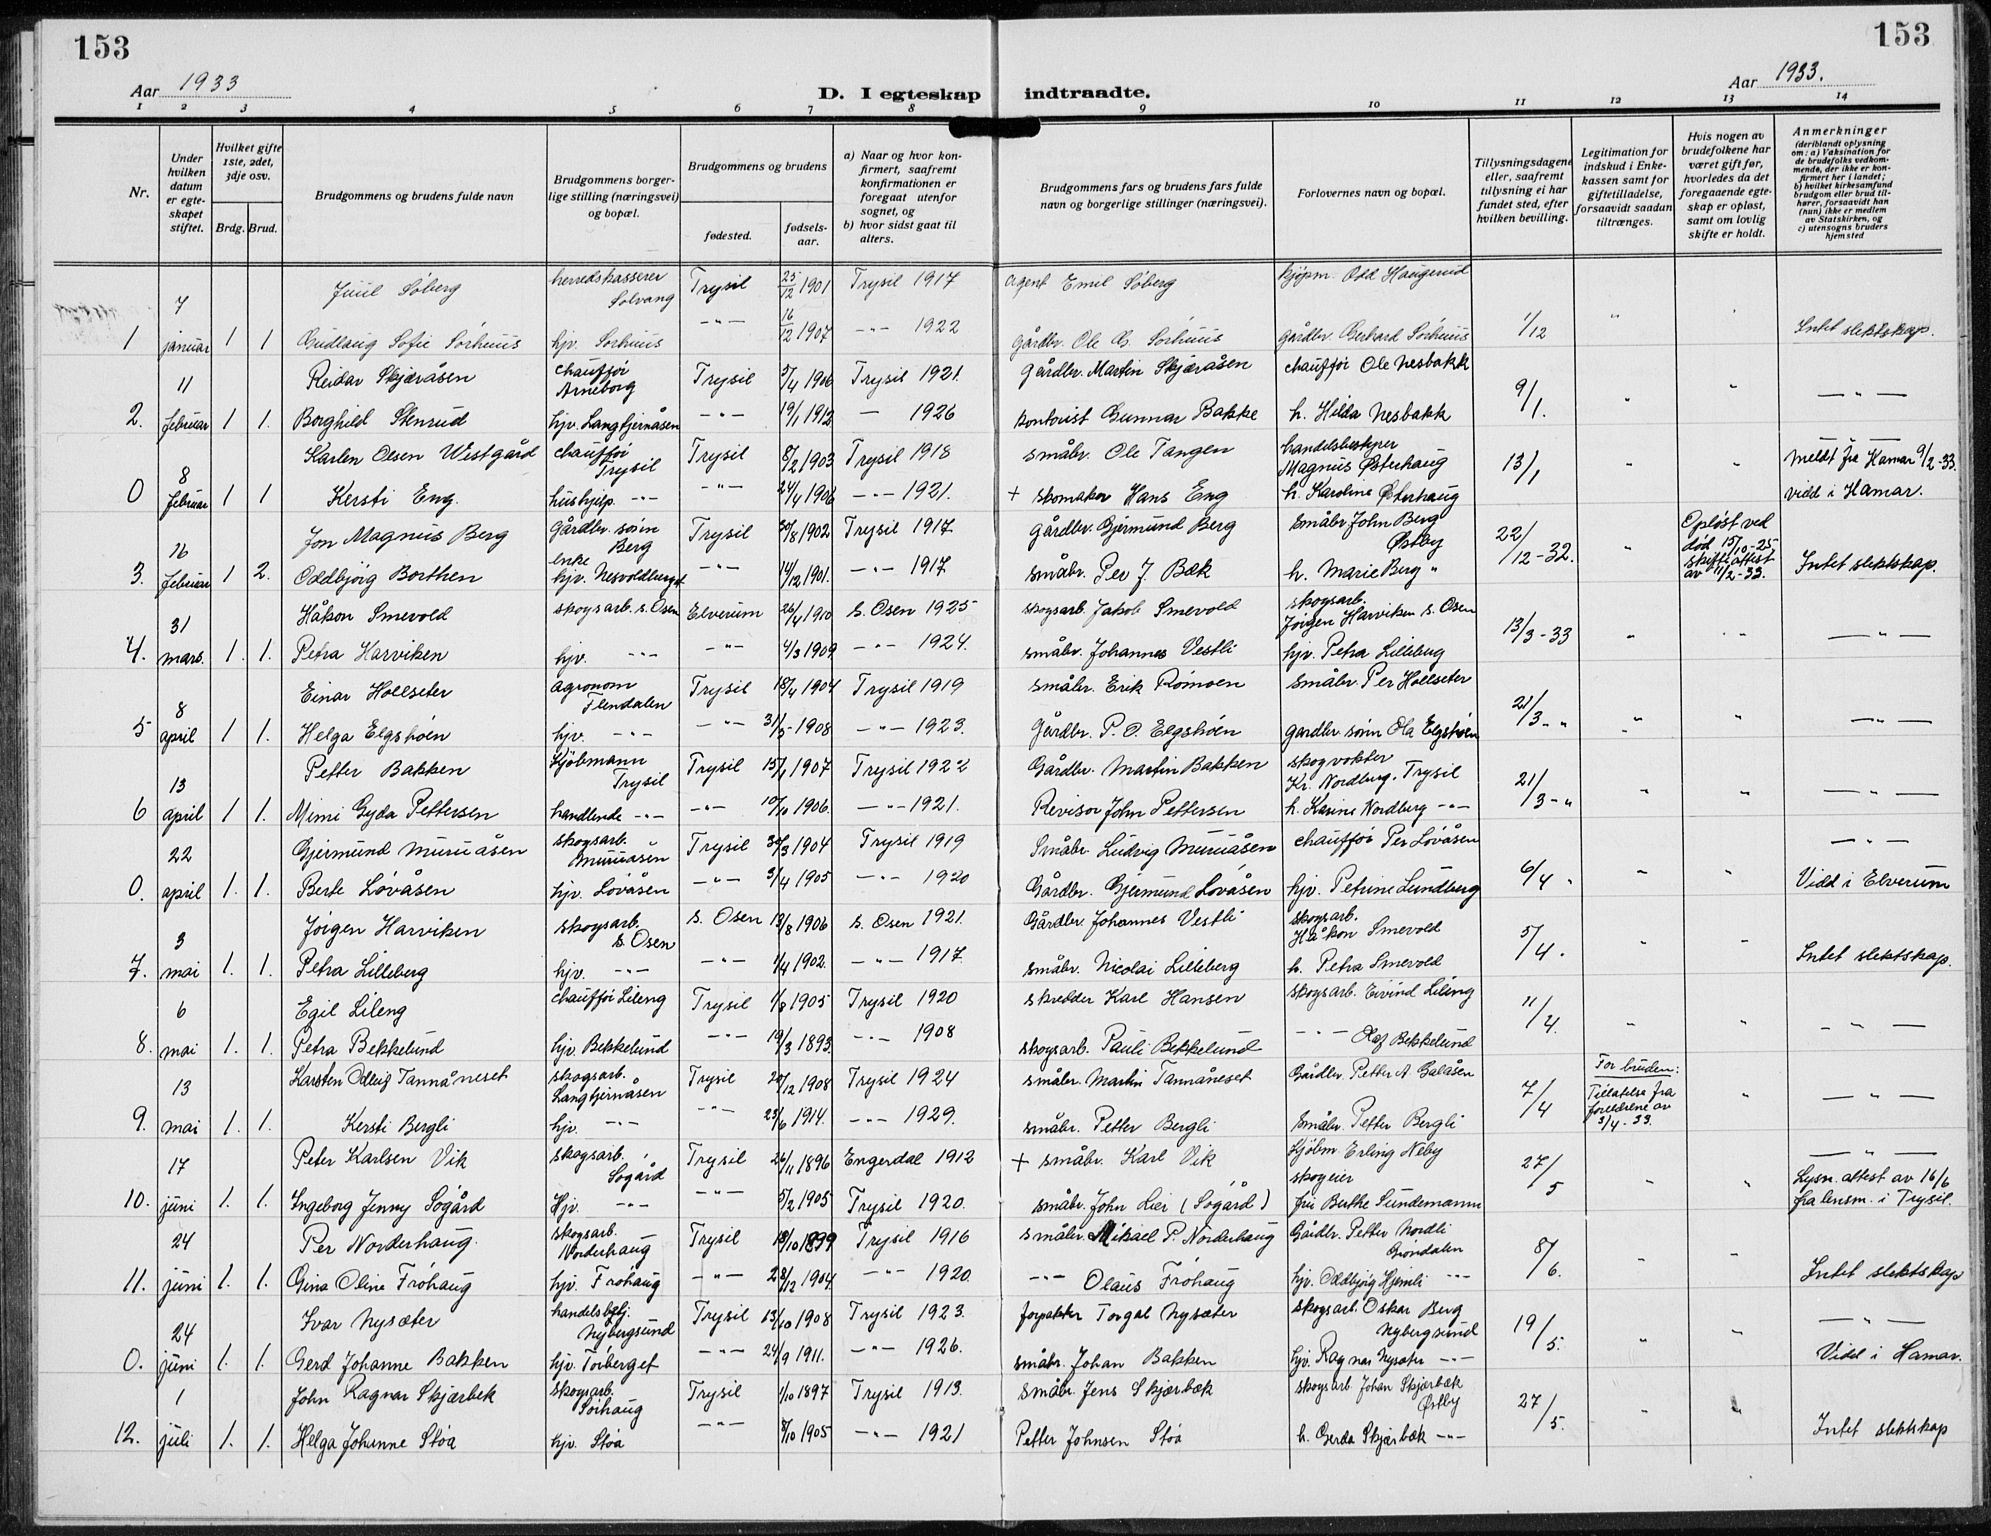 153
153
Aar 1933
Aar 1933.
D. I egteskap indtraadte.
1 2 3 4 5 6 7 8 9 10 11 12 13 14
Nr.
Under hvilken datum er egteskapet stiftet.
Hvilket gifte 1ste, 2det, 3dje osv.
Brdg. Brud.
Brudgommens og brudens fulde navn
Brudgommens borgerlige stilling (næringsvei) og bopæl.
Brudgommens og brudens
fødested.
fødselsaar.
a) Naar og hvor konfirmert, saafremt konfirmationen er foregaat utenfor sognet, og
b) hvor sidst gaat til alters.
Brudgommens fars og brudens fars fulde navn og borgerlige stillinger (næringsvei).
Forlovernes navn og bopæl.
Tillysningsdagene eller, saafremt tillysning ei har fundet sted, efter hvilken bevilling.
Legitimation for indskud i Enkekassen samt for giftetilladelse, forsaavidt saadan tiltrænges.
Hvis nogen av brudefolkene har været gift før, hvorledes da det foregaaende egteskap er opløst, samt om lovlig skifte er holdt.
Anmerkninger (deriblandt oplysning om: a) Vaksination for de brudefolks vedkommende, der ikke er konfirmert her i landet; b) hvilket kirkesamfund brudgom eller brud tilhører, forsaavidt han (hun) ikke er medlem av Statskirken, og c) utensogns bruders hjemsted
7 Juul Søberg herredskasserer Solvang Trysil 25/12 1901 Trysil 1917 Agent Emil Søberg kjøpm. Odd Haugerud
1 januar 1 1 Gudlaug Sofie Sørhuus hjv. Sorhuus -"- 16/12 1907 -"- 1922 gårdbr. Ole G. Sørhuus gårdbr. Gerhard Sørhuus 1/12 " " Intet slektskap.
11 Reidar Skjæråsen chauffør Arneborg Trysil 5/4 1906 Trysil 1921. Gårdbr. Martin Skjæråsen chauffør Ole Nesbakk
2. februar 1 1. Borghild Stenrud hjv. Langtjernåsen -"- 19/1 1912 - 1926 kontorist Gunnar Bakke h. Hilda Nesbakk 9/1. " " -"-
8 Karlen Olsen Westgård chauffør Trysil Trysil 8/2 1903 Trysil 1918 småbr. Ole Tangen handelsbestyrer Magnus Østerhaug -"- Meldt fra Hamar 9/2-33.
0 februar 1 1 Kersti Eng. hushjelp. -"- -"- 24/4 1906 -"- 1921. + skomaker Hans Eng h. Karoline Østerhaug 13/1 " " vidd i Hamar.
16 Jon Magnus Berg gårdbr. sønn Berg Trysil 30/8 1902 Trysil 1917 gårdbr. Gjermund Berg småbr John Berg Østby Opløst ved død 15/10-25
3. februar 1 2. Oddbjørg Borthen enke hjv. Nesvoldberget -"- 14/12 1901. -"- 1917 småbr. Per J. Bæk h. Marie Berg " 22/12-32. " skifteattest av 11/2-33. Intet slektskap.
31 Håkon Smevold skogsarb. s. Osen Elverum 26/4 1910 S. Osen 1925 skogsarb. Jakob Smevold skogsarb. Jørgen Harviken s. Osen
4. mars. 1. 1. Petra Harviken hjv. -"- -"- 4/3 1909 -"- 1924. småbr. Johannes Vestli hjv. Petra Lilleberg 13/3-33 " " -"-
8 Einar Hollseter agronom Flendalen Trysil 18/4 1904 Trysil 1919 småbr. Erik Rømoen småbr. Per Hollseter
5 april 1 1. Helga Elgshøen hjv. -"- -"- 31/5 1908 -"- 1923. Gårdbr. P. O. Elgshøen gardbr sønn Ola Elgshøen 21/3-" " " -"-
13 Petter Bakken Kjøbmann Trysil Trysil 15/1 1907 Trysil 1922 Gårdbr. Martin Bakken skogvokter Kr. Nordberg. Trysil
6 april 1 1. Mimi Gyda Pettersen handlende -"- -"- 10/10 1906. -"- 1921. Revisor John Pettersen h. Karine Nordberg -"- 21/3-" " " -"-
22 Gjermund Muruåsen skogsarb. Muruåsen Trysil 30/3 1904 Trysil 1919 Småbr. Ludvig Muruåsen chauffør Per Løvåsen -"-
0. april 1. 1. Berte Løvåsen hjv. Løvåsen -"- 3/4 1905 -"- 1920 Gårdbr. Gjermund Løvåsen hjv. Petrine Lundberg 6/4 . " " Vidd i Elverum
3 Jørgen Harviken skogsarb. s. Osen s. Osen 13/8 1906 s. Osen 1921. Gårdbr. Johannes Vestli skogsarb. Håkon Smevold
7. mai 1. 1. Petra Lilleberg hjv. -"- -"- 1/4 1902. -"- 1917. småbr. Nicolai Lilleberg h. Petra Smevold 5/4. " " Intet slektskap.
6 Egil Lileng chauffør Lileng Trysil 1/8 1905 Trysil 1920 skredder Karl Hansen skogsarb. Eivind Lileng
8. mai 1. 1. Petra Bekkelund hjv. Bekkelund -"- 19/3 1893. -"- 1908 skogsarb. Pauli Bekkelund -"- Olaf Bekkelund 11/4. " " -"-
13 Karsten Odleif Tannåneset skogsarb. Langtjernåsen Trysil 20/12 1908 Trysil 1924 småbr. Martin Tannåneset Gårdbr. Petter A. Galåsen For bruden:
9. mai 1. 1. Kersti Bergli hjv. -"- -"- 23/6 1914. -"- 1929. småbr. Petter Bergli småbr. Petter Bergli 7/4 Tillatelse fra foreldrene av 3/4-33. " -"-
17 Peter Karlsen Vik skogsarb. Søgård Trysil 26/11 1896 Engerdal 1912 + småbr. Karl Vik Kjøbm. Erling Neby -"-
10. juni 1. 1. Ingeborg Jenny Søgård Hjv. -"- -"- 5/2 1905 Trysil 1920. småbr. John Lier (Søgård) skogeier fru Berthe Sundemann 27/5 " " Lysn. attest av 16/6 fra lensm. i Trysil.
24 Per Norderhaug. skogsarb. Norderhaug Trysil 18/10 1899 Trysil 1916 småbr. Mikael P. Norderhaug Gårdbr. Petter Nordli Grøndalen
11. juni 1. 1. Gina Oline Frøhaug hjv. Frøhaug -"- 28/12 1904. -"- 1920. -"- Olaus Frøhaug hjv. Oddbjørg Hjemli -"- 8/6. " " Intet slektskap
24 Ivar Nysæter handelsbetj. Nybergsund Trysil 13/10 1908 Trysil 1923. forpakter Torgal Nysæter skogsarb Oskar Berg Nybergsund -"-
0. juni 1. 1. Gerd Johanne Bakken hjv. Tørberget -"- 24/9 1911. -"- 1926. småbr. Johan Bakken hjv. Ragna Nysæter -"- 19/5. " " Vidd i Hamar.
1 John Ragnar Skjærbek skogsarb. Sørhaug Trysil 1/10 1897 Trysil 1913 småbr. Jens Skjærbæk skogsarb Johan Skjærbæk Østby
12. juli 1. 1. Helga Johanne Støa hjv. Støa -"- 8/10 1905 -"- 1921 Petter Johnsen Støa h. Gerda Skjærbæk -"- 27/5. " " Intet slektskap